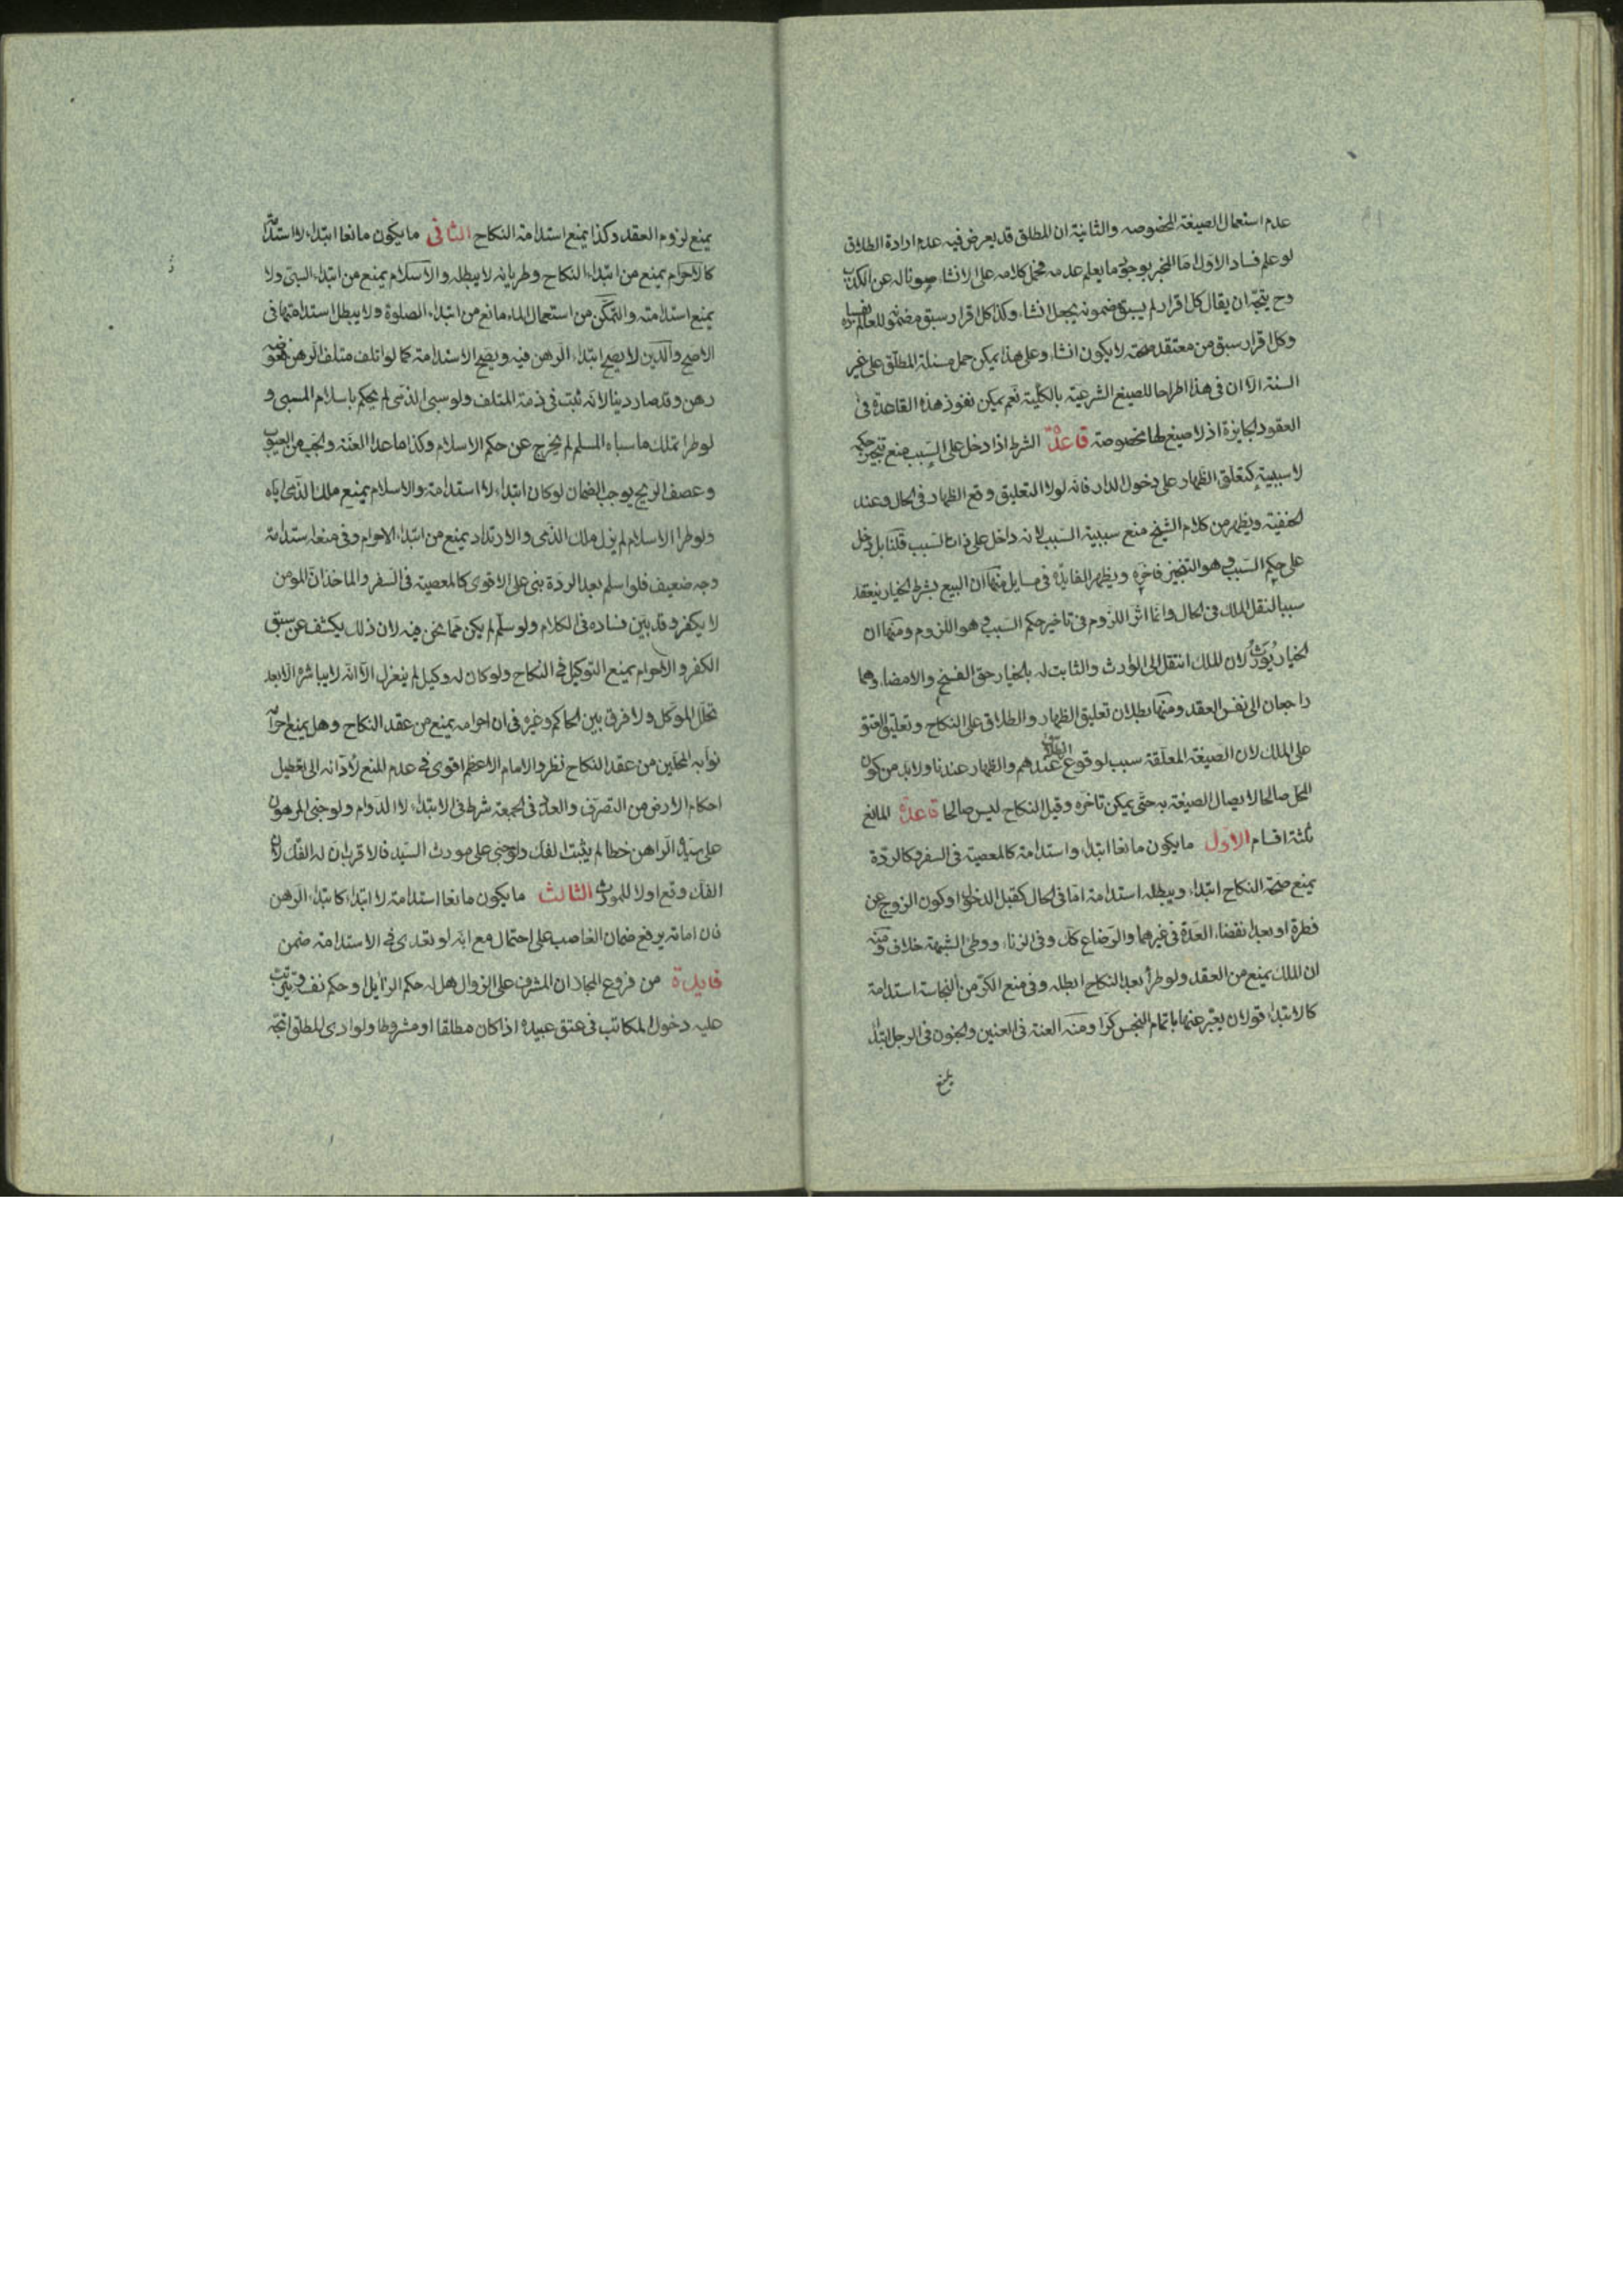 عدم استعمال الصيغة المخصوصه والثانية ان المطلق قد يعرض فيه عدم ارادة الطلاق
لو علم فساد الاول اما المخبر بوجوب ما يعلم عدمه فحمل كلامه على الانشاء صونا له عن الكذب
وح يتجه ان يقال كل اقرار لم يسبق مضمونه يجعل انشاء وكذا كل اقرار سبق مضمونه للعالم
وكل اقرار سبق من معتقد صحته لا يكون انشاء وعلى هذا يمكن حمل مسئلة المطلق على غير
السنة الا ان فى هذا اطراحا للصيغ الشرعية بالكلية نعم يمكن نفوذ هذه القاعدة فى
العقود الجايزة اذ لا صيغ لها مخصوصة قاعدة الشرط اذا دخل على السبب منع تنجيز حكمه
لا سببيته كتعلق الظهار على دخول الدار فانه لولا التعليق وقع الظهار فى الحال وعند
الحنفية ويظهر من كلام الشيخ منع سببية السبب لانه داخل على ذات السبب قلنا بل دخل
على حكم السبب وهو التنجيز فاخره ويظهر الفايدة فى مسايل منها ان البيع بشرط الخيار ينعقد
سببا لنقل الملك فى الحال وانما اثر اللزوم فى تاخير حكم السبب وهو اللزوم ومنها ان
الخيار يورث لان الملك انتقل الى الوارث والثابت له بالخيار حق الفسخ والامضاء وهما
راجعان الى نفس العقد ومنها بطلان تعليق الظهار والطلاق على النكاح وتعليق العتق
على الملك لان الصيغة المعلقة سبب لوقوع الطلاق عندهم والظهار عندنا ولابد من كون
المحل صالحا لايصال الصيغة به حتى يمكن تاخره وقبل النكاح ليس صالحا قاعدة المانع
ثلثة اقسام الاول ما يكون مانعا ابتداء واستدامة كالمعصية فى السفر وكالردة
يمنع صحة النكاح ابتداء ويبطله استدامة اما فى الحال كقبل الدخول او كون الزوج عن
فطرة او بعد انقضاء العدة فى غيرهما والرضاع كك وفى الزناء ووطئ الشبهة خلاف ومنه
ان الملك يمنع من العقد ولو طرأ بعد النكاح ابطله وفى منع الكر من النجاسة استدامة
كالابتداء قولان يعبر عنهما باتمام النجس كرا ومنه العنة فى العنين والجنون فى الرجل ابتداء
بلغ
يمنع لزوم العقد وكذا يمنع استدامة النكاح الثانى ما يكون مانعا ابتداء لا استدامة
كالاحرام يمنع من ابتداء النكاح وطريانه لا يبطله والاسلام يمنع من ابتداء السبى ولا
يمنع استدامته والتمكن من استعمال الماء مانع من ابتداء الصلوة ولا يبطل استدامتها فى
الاصح والدين لا يصح ابتداء الرهن فيه ويصح الاستدامة كما لو اتلف متلف الرهن فعوضه
رهن وقد صار دينا لانه ثبت فى ذمة المتلف ولو سبى الذمى لم يحكم باسلام المسبى و
لو طرا تملك ما سباه المسلم لم يخرج عن حكم الاسلام وكذا ما عدا العنة والجب من العيوب
وعصف الريح يوجب الضمان لو كان ابتداء لا استدامة والاسلام يمنع ملك الذمى اياه
ولو طرا الاسلام لم يزل ملك الذمى والارتداد يمنع من ابتداء الاحرام وفى منعه استدامة
وجه ضعيف فلو اسلم بعد الردة بنى على الاقوى كالمعصية فى السفر والماخذ ان المومن
لا يكفر وقد بين فساده فى الكلام ولو سلم لم يكن مما نحن فيه لان ذلك يكشف عن سبق
الكفر والاحرام يمنع التوكيل فى النكاح ولو كان له وكيل لم ينعزل الا انه لا يباشره الا بعد
تحلل الموكل ولا فرق بين الحاكم وغيره فى ان احرامه يمنع من عقد النكاح وهل يمنع احرامه
نوابه المحلين من عقد النكاح نظر والامام الاعظم اقوى فى عدم المنع لادائه الى تعطيل
احكام الارض من التصرف والعدد فى الجمعة شرط فى الابتداء لا الدوام ولو جنى المرهون
على سيده الراهن خطا لم يثبت الفك ولو جنى على مورث السيد فالاقرب ان له الفك لان
الفك وقع اولا للمورث الثالث ما يكون مانعا استدامة لا ابتداء كابتداء الرهن
فان امانته يرفع ضمان الغاصب على احتمال مع انه لو تعدى فى الاستدامة ضمن
فايدة من فروع المجاز ان المشرف على الزوال هل له حكم الزايل او حكم نفسه ويترتب
عليه دخول المكاتب فى عتق عبيده اذا كان مطلقا او مشروطا ولو ادى المطلق اتجه